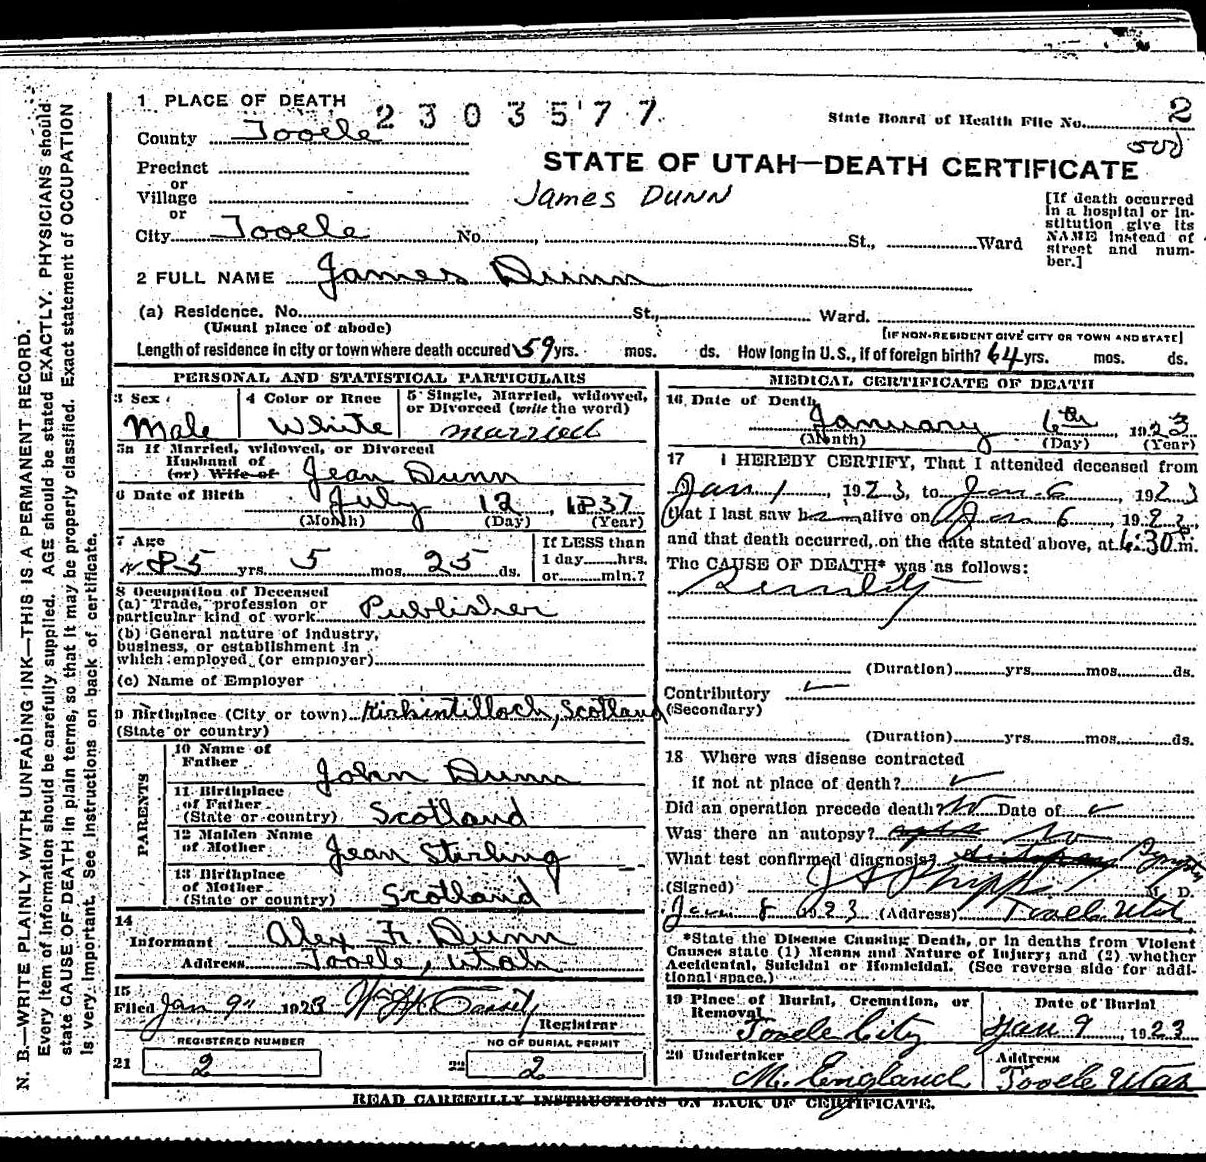 1 PLACE OF DEATH
2303577
State Board of Health File No. 2
County Tooele
500
STATE OF UTAH—DEATH CERTIFICATE
Precinct
or
Village
James DUNN
or
City Tooele No. St., Ward
[If death occurred in a hospital or in-
stitution give its
NAME instead of
street and num-
ber.]
2 FULL NAME James Dunn
(a) Residence. No. St., Ward.
(Usual place of abode)
[IF NON-RESIDENT GIVE CITY OR TOWN AND STATE]
Length of residence in city or town where death occured 59 yrs. mos. ds. How long in U.S., if of foreign birth? 64 yrs. mos. ds.
PERSONAL AND STATISTICAL PARTICULARS
3 Sex
Male
4 Color or Race
White
5 Single, Married, widowed,
or Divorced (write the word)
married
5a If Married, widowed, or Divorced
Husband of
(or) Wife of Jean Dunn
6 Date of Birth July 12, 1837
(Month) (Day) (Year)
7 Age
85 yrs. 5 mos. 25 ds.
If LESS than
1 day hrs.
or min.?
8 Occupation of Deceased
(a) Trade, profession or
particular kind of work Publisher
(b) General nature of industry,
business, or establishment in
which employed (or employer)
(c) Name of Employer
9 Birthplace (City or town) Kirkintilloch, Scotland
(State or country)
PARENTS
10 Name of
Father John Dunn
11 Birthplace
of Father
(State or country) Scotland
12 Maiden Name
of Mother Jean Stirling
13 Birthplace
of Mother
(State or country) Scotland
14
Informant Alex F. Dunn
Address Tooele, Utah
15
Filed Jan 9 1923
Registrar
REGISTERED NUMBER
21 2
NO OF BURIAL PERMIT
22 2
MEDICAL CERTIFICATE OF DEATH
16 Date of Death
January 6th, 1923
(Month) (Day) (Year)
17 I HEREBY CERTIFY, That I attended deceased from
Jan 1, 1923, to Jan 6, 1923
that I last saw h alive on Jan 6, 1923,
and that death occurred, on the date stated above, at 6:30 m.
The CAUSE OF DEATH* was as follows:
Senility
(Duration) yrs. mos. ds.
Contributory
(Secondary)
(Duration) yrs. mos. ds.
18 Where was disease contracted
if not at place of death?
Did an operation precede death? No Date of
Was there an autopsy? No
What test confirmed diagnosis?
(Signed) M. D.
Jan 8 1923 (Address) Tooele Utah
*State the Disease Causing Death, or in deaths from Violent
Causes state (1) Means and Nature of Injury; and (2) whether
Accidental, Suicidal or Homicidal. (See reverse side for addi-
tional space.)
19 Place of Burial, Cremation, or
Removal
Tooele City
Date of Burial
Jan 9, 1923
20 Undertaker
M. England
Address
Tooele Utah
READ CAREFULLY INSTRUCTIONS ON BACK OF CERTIFICATE.
N. B.—WRITE PLAINLY WITH UNFADING INK—THIS IS A PERMANENT RECORD.
Every item of information should be carefully supplied. AGE should be stated EXACTLY. PHYSICIANS should
state CAUSE OF DEATH in plain terms, so that it may be properly classified. Exact statement of OCCUPATION
is very important. See instructions on back of certificate.